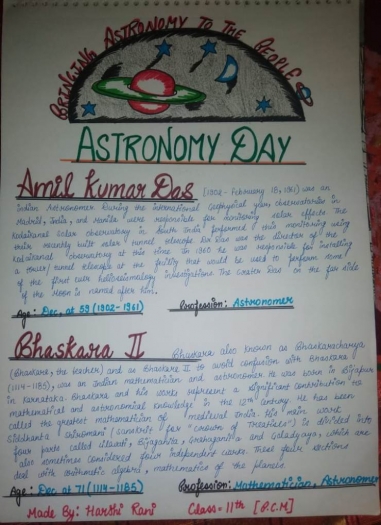 BRINGING ASTRONOMY TO THE PEOPLE
ASTRONOMY DAY
Amil Kumar Das (1902- February 18, 1961) was an
Indian Astronomer. During the international Geophysical year observatories in
Madrid, India, and Manila were responsible for monitoring solar effects. The
Kodaikanal Solar observatory in South India performed this monitoring using
their recently built solar tunnel telescope. Das was the director of the
Kodaikanal observatory at this time. In 1960 he was responsible for installing
a tower/tunnel telescope at the facility that would be used to perform some
of the first ever helioseismology investigations. The crater Das on the far side
of the Moon is named after him.
Age: Dec. at 59 (1902-1961) Profession: Astronomer
Bhaskara II Bhaskara also known as Bhaskaracharya
(Bhaskara, the teacher) and as Bhaskara II to avoid confusion with Bhaskara I
(1114-1185), was an Indian mathematician and astronomer. He was born in Bijapur
in Karnataka. Bhaskara and his works represent a significant contribution to
mathematical and astronomical knowledge in the 12th century. He has been
called the greatest mathematician of medieval India. His main work
Siddhanta Shiromani (Sanskrit for "Crown of Treatises") is divided into
four parts called Lilavati, Bijaganita, Grahaganita and Goladyaya, which are
also sometimes considered four independent works. These four sections
deal with arithmetic algebra, mathematics of the planets
Age: Dec. at 71 (1114-1185) Profession: Mathematician, Astronomer
Made By: Harshi Rani Class= 11th [P.C.M]